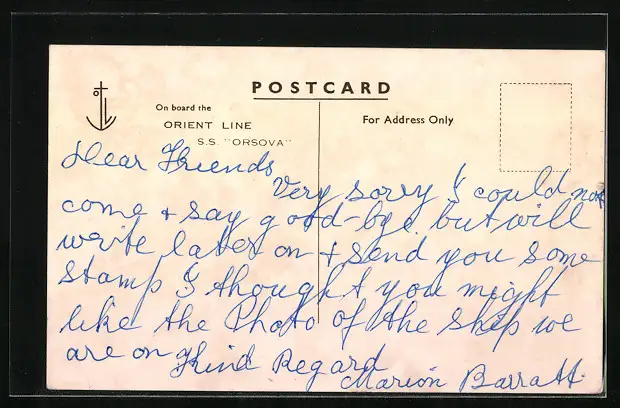 POSTCARD
On board the
ORIENT LINE
S.S. "ORSOVA"
For Address Only
Dear Friends
Very sorry I could not
come + say good-bye but will
write later on + send you some
stamp I thought you might
like the Photo of the ship we
are on Kind Regard
Marion Barratt.